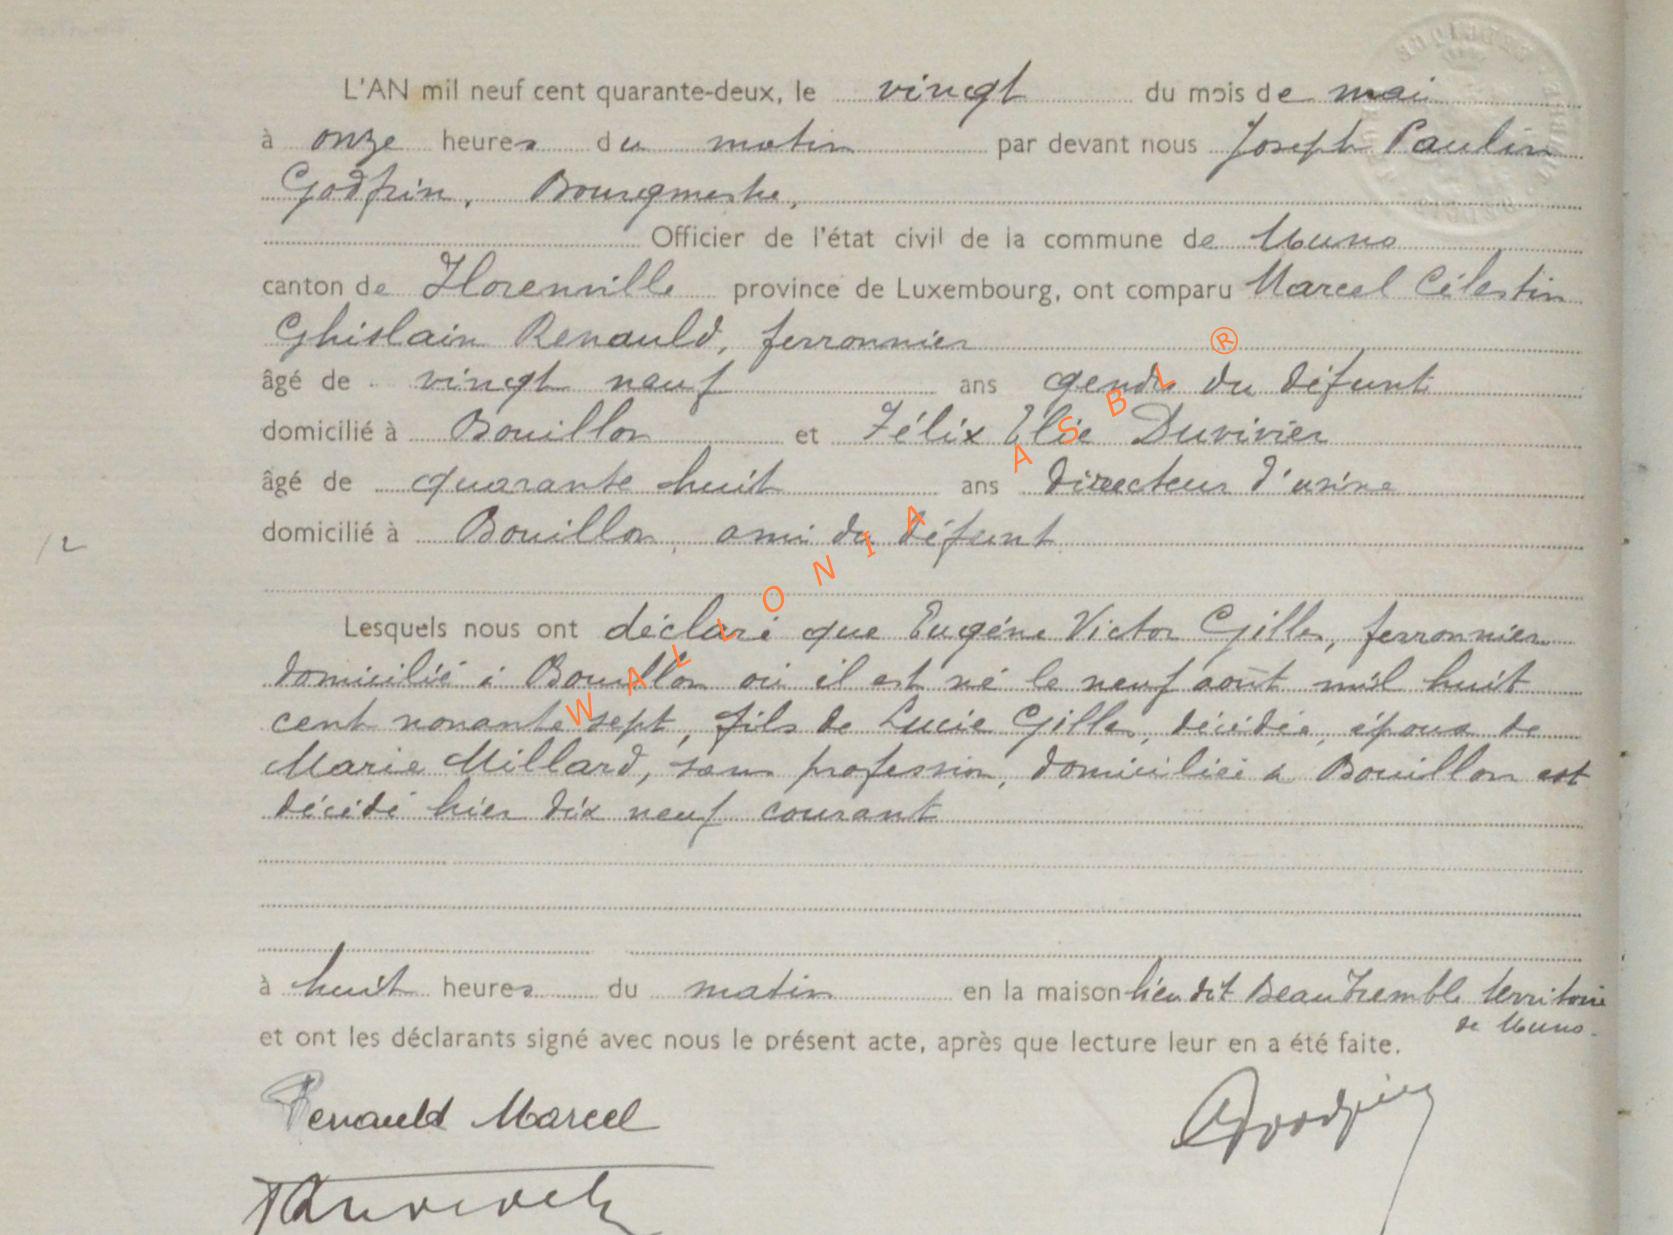 L'AN mil neuf cent quarante-deux, le vingt du mois de mai
à onze heures du matin par devant nous Joseph Paulin
Godfrin, Bourgmestre,
Officier de l'état civil de la commune de Muno
canton de Florenville province de Luxembourg, ont comparu Marcel Célestin
Ghislain Renauld, ferronnier
âgé de vingt neuf ans gendre du défunt
domicilié à Bouillon et Félix Elie Duvivier
âgé de quarante huit ans directeur d'usine
domicilié à Bouillon, ami du défunt
12
Lesquels nous ont déclaré que Eugène Victor Gilles, ferronnier
domicilié à Bouillon où il est né le neuf août mil huit
cent nonante sept, fils de Lucie Gilles, décédée, époux de
Marie Millard, sans profession, domiciliée à Bouillon est
décédé hier dix neuf courant
à huit heures du matin en la maison lieu dit BeauTremble territoire
de Muno.
et ont les déclarants signé avec nous le présent acte, après que lecture leur en a été faite.
Renauld Marcel
Godfrin
WALLONIA ASBL ®